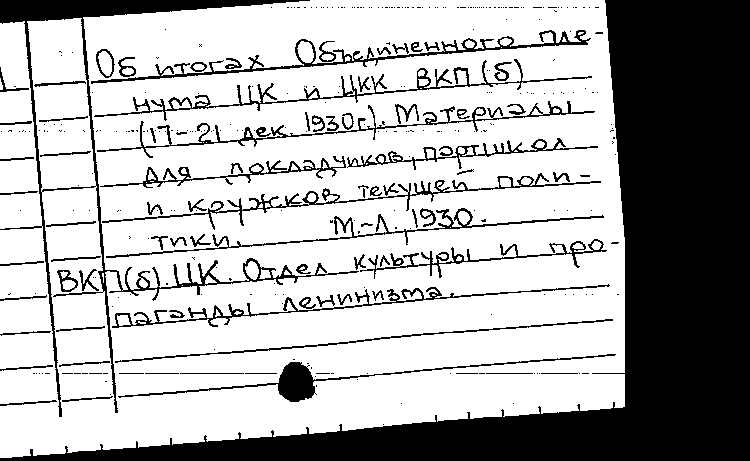 Об итогах Объединенного пле-
нума ЦК и ЦКК ВКП(б)
(17-21 дек. 1930г.). Материалы
для докладчиков, партшкол
и кружков текущей поли-
тики. М.-Л., 1930.
ВКП(б). ЦК. Отдел культуры и про-
паганды ленинизма.